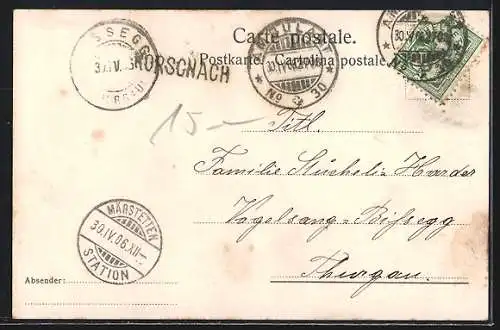 Carte postale.
Postkarte. Cartolina postale.
SSEGG
RORSCHACH
AMBULANT
30.IV.06
No 2 30
15-
Titl.
Familie Stücheli-Harder
Vogelsang-Bissegg
Thurgau.
MÄRSTETTEN
30.IV.06.XII-
STATION
Absender: